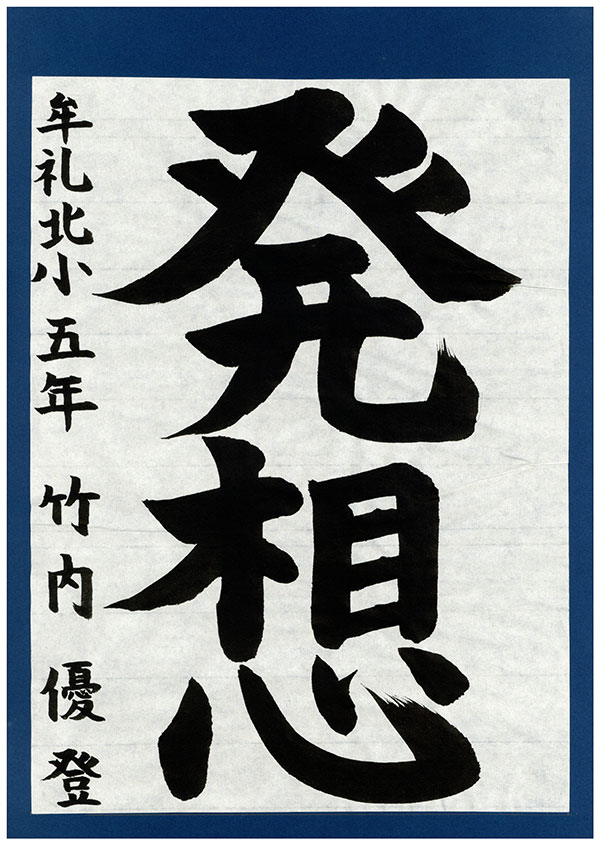 発想
牟礼北小 五年 竹内 優登